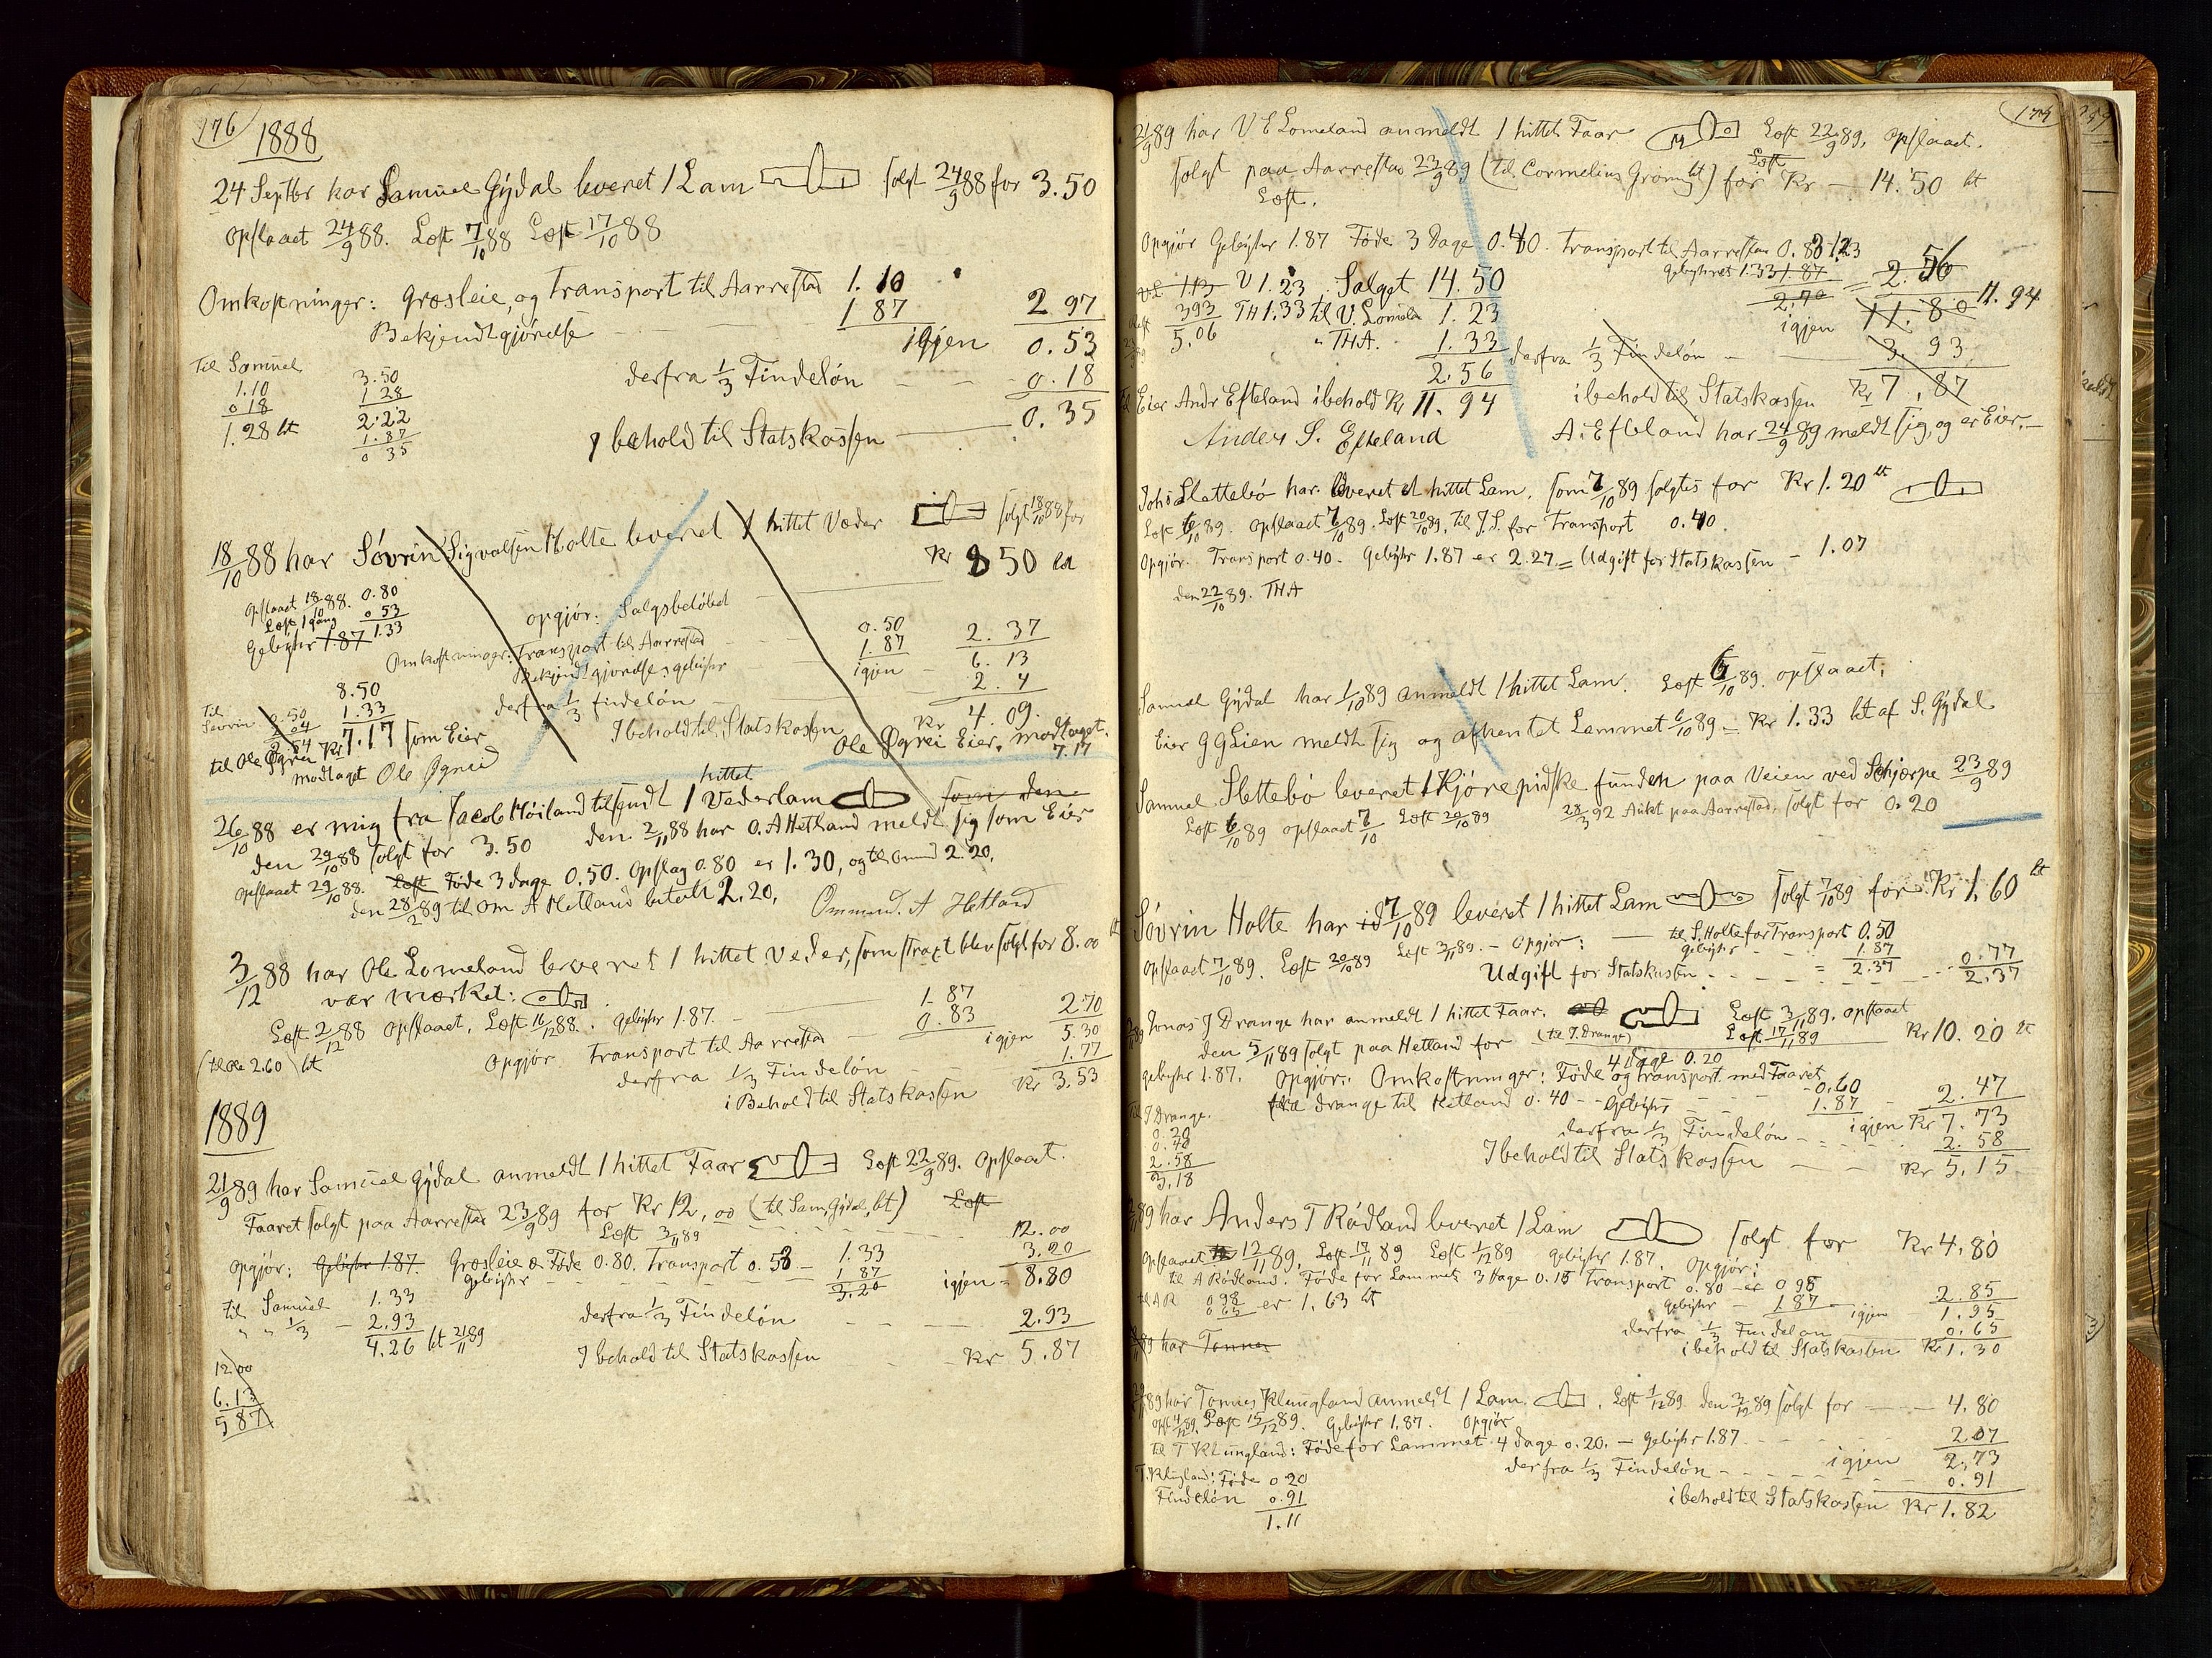 176
1888
24 Septbr har Samuel Gydal leveret 1 Lam solgt 24/9 88 for 3.50
Opslaaet 24/9 88. Læst 7/10 88 Læst 17/10 88
Omkostninger: Græsleie, og Transport til Aarrestad 1.10
Bekjendtgjørelse 1 87 2 97
igjen 0.53
derfra 1/3 Findeløn 0.18
I behold til Statskassen 0.35
Til Samuel
1.10
0 18
1.28 bt
3.50
1 28
2.22
1.87
0 35
18/10 88 har Søvrin Sigvalsen Holte leveret 1 hittet Væder solgt 18/10 88 for
Kr 8 50 bt
Opslaaet 18/10 88. 0.80
Læst 1 gang 0 53
Gebyhr 1.87 1.33
opgjør: Salgsbeløbet
Omkostninger: Transport til Aarrestad 0.50
Bekjendtgjørelse gebyhr 1.87 2.37
igjen 6.13
derfra 1/3 findeløn 2.4
I behold til Statskassen Kr 4.09.
8.50
1.33
7.17
Til Søvrin 0.50
2.04
2.54
til Ole Øgrei Kr 7.17 som Eier
modtaget Ole Øgreid
Ole Øgrei Eier. modtaget.
7.17
26/10 88 er mig fra Jacob Høiland tilsendt 1 hittet Væderlam som den
den 29/10 88 solgt for 3.50 den 2/11 88 har O. A Hetland meldt sig som Eier
Opslaaet 29/10 88. Læst Føde 3 dage 0.50. Opslag 0.80 er 1.30, og til Omund 2.20.
den 28/2 89 til Om A Hetland betalt 2.20.
Ommund. A Hetland
3/12 88 har Ole Lomeland leveret 1 hittet Veder, som straxt blev solgt for 8.00 bt
var mærket:
Læst 2/12 88 Opslaaet. Læst 16/12 88. Gebyhr 1.87. 1.87
Opgjør Transport til Aarrestad 0.83 2.70
igjen 5.30
(til Ole 2.60) bt
derfra 1/3 Findeløn 1.77
i Behold til Statskassen Kr 3.53
1889
21/9 89 har Samuel Gydal anmeldt 1 hittet Faar Læst 22/9 89. Opslaaet.
Faaret solgt paa Aarrestad 23/9 89 for Kr 12,00 (til Sam. Gydal, bt) Læst
Læst 3/11 89 12.00
opgjør: Gebyhr 1.87. Græsleie & Føde 0.80. Transport 0.53 1.33 3.20
gebyhr 1 87 igjen = 8.80
3.20
til Samuel 1.33
" " 1/3 2.93
4.26 bt 21/11 89
derfra 1/3 Findeløn 2.93
I behold til Statskassen Kr 5.87
12.00
6.13
5 87
21/9 89 har V E Lomeland anmeldt 1 hittet Faar Læst 22/9 89, Opslaaet.
Læst
solgt paa Aarrestad 23/9 89 (til Cornelius Grøning bt) for Kr 14.50 bt
Læst.
Opgjør Gebyhr 1.87 Føde 3 Dage 0.40. Transport til Aarrestad 0.83 1.23
Gebyhret 1.33 1.87 2.56
2.70
V 1.23 Salget 14.50
393 TH 1.33 til V. Lomela 1.23 igjen 11.80 11.94
5.06 " THA. 1.33 derfra 1/3 Findeløn 3.93
2.56
Eier Andr Efteland i behold Kr 11.94 i behold til Statskassen Kr 7,87
Anders S. Efteland
A. Efteland har 24/9 89 meldt sig, og er Eier.
Johs Slettebø har leveret et hittet Lam. som 7/10 89 solgtes for Kr 1.20 bt
Læst 6/10 89. Opslaaet 7/10 89. Læst 20/10 89. Til J. S. for Transport 0.40.
Opgjør: Transport 0.40. Gebyhr 1.87 er 2.27 = Udgift for Statskassen - 1.07
den 22/10 89. THA
Samuel Gydal har 1/10 89 anmeldt 1 hittet Lam. Læst 6/10 89. opslaaet;
Eier G G Lien meldt sig og afhentet Lammet 6/10 89 = Kr 1.33 bt af S. Gydal
Samuel Slettebø leveret 1 Kjørepidske funden paa Veien ved Schjærpe 23/9 89
Læst 6/10 89 opslaaet 7/10 Læst 20/10 89 28/3 92 Aukt paa Aarrestad, solgt for 0.20
Søvrin Holte har id 7/10 89 leveret 1 hittet Lam solgt 7/10 89 for Kr 1.60 bt
Opslaaet 7/10 89. Læst 20/10 89 Læst 3/11 89. - Opgjør: til S. Holte for Transport 0.50
gebyhr 1.87 0.77
Udgift for Statskassen = 2.37 2.37
Jonas J Drange har anmeldt 1 hittet Faar. Læst 3/11 89. opslaaet
den 5/11 89 solgt paa Hetland for (til J. Drange) Læst 17/11 89 Kr 10.20 bt
gebyhr 1.87. Opgjør: Omkostninger: Føde 4 Dage 0.20 og transport med Faaret
fra Drange til Hetland 0.40 0.60
Gebyhr 1.87 2.47
igjen Kr 7.73
derfra 1/3 Findeløn 2.58
I behold til Statskassen Kr 5.15
Til J Drange.
0.20
0.40
2.58
3.18
89 har Anders T Rødland leveret 1 Lam solgt for Kr 4.80
Opslaaet 12/11 89, Læst 17/11 89 Læst 1/12 89 gebyhr 1.87. Opgjør:
til A Rødland. Føde for Lammet 3 dage 0.18 Transport 0.80 er 0.98 2.85
gebyhr 1.87 igjen 1.95
til A R 0.98
0.65 er 1.63 bt
derfra 1/3 Findeløn 0.65
i behold til Statskassen Kr 1.30
89 har Tonnes
89 har Tonnes Klungland anmeldt 1 Lam. Læst 1/12 89 den 3/12 89 solgt for 4.80
Læst 15/12 89. Gebyhr 1.87. Opgjør
til T Klungland: Føde for Lammet 4 dage 0.20. - Gebyhr 1.87 2.07
igjen 2.73
T. Klungland: Føde 0 20 derfra 1/3 Findeløn 0.91
Findeløn 0.91 i behold til Statskassen Kr 1.82
1.11